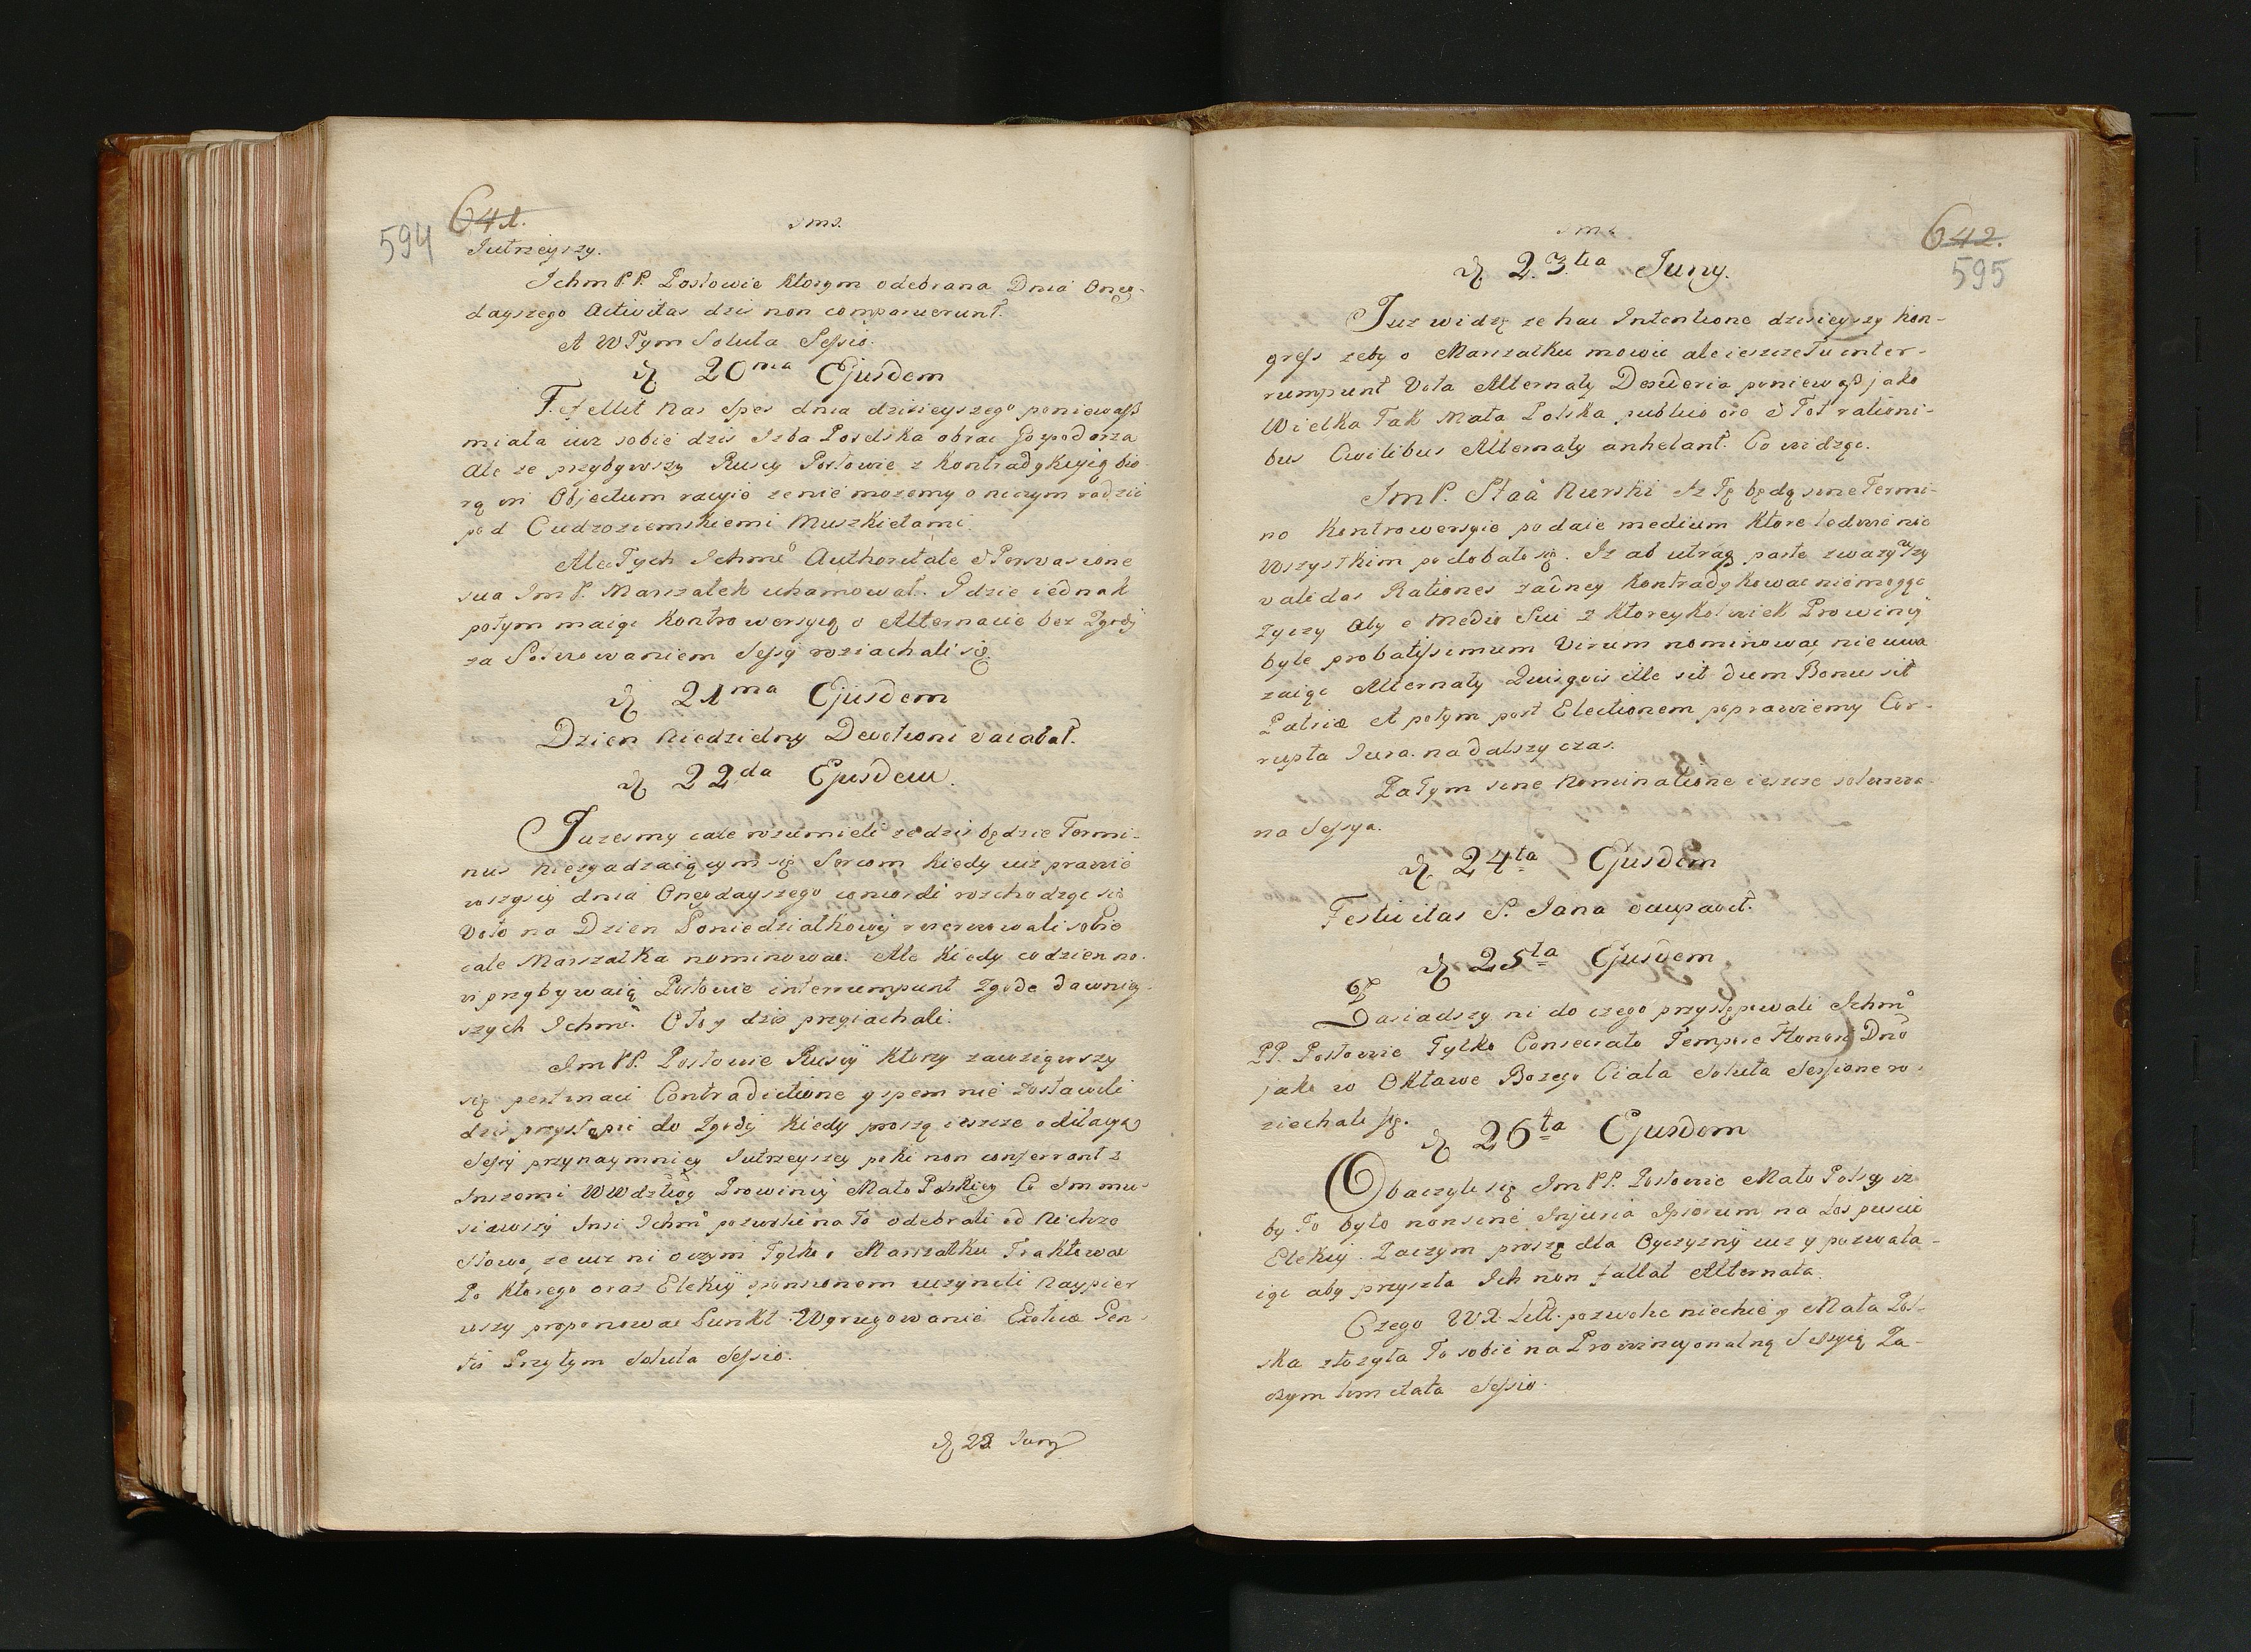 641.
594
Jutrzeyszy.
Ichm PP. Posłowie ktorym odebrana Dnia Oneg-
dayszego Activitas dzis non comparuerunt.
et w Tym Soluta Sessio.
d. 20ma Ejusdem
Fefellit nas Spes dnia dzisieyszego poniewaß
miała iuz sobie dzis Izba Poselska obrac Gospodarza
Ale ze przybywszy Ruscy Posłowie z Kontradykcyią bio-
rą in Objectum racyie ze nie mozemy o niczym radzic
pod Cudzoziemskiemi Muszkietami.
Ale Tych Ichmć Authoritate & Persvasione
sua Im P. Marszałek uhamował. Gdzie iednak
potym maiąc Kontrowersyią o Alternacie bez Zgody
za Solwowaniem Sessyi roziachali się.
d. 21ma Ejusdem
Dzien Niedzielny Devotioni vacabat.
d. 22da Ejusdem.
Juzesmy cale rozumieli ze dzis będzie Termi-
nus niezgadzaiącym się Sercom kiedy iuz prawie
wszyscy dnia Onegdayszego concordi rozchodząc się
Voto na Dzien Poniedziałkowy rezerwowali sobie
cale Marszałka nominowac. Ale kiedy codzien no-
wi przybywaią Posłowie interrumpunt Zgodę dawniey-
szych Ichmć. Otoz dzis przyiachali.
Im PP. Posłowie Ruscy ktorzy zawziąwszy
się pertinaci Contradictione y spem nie zostawili
dzis przystąpic do Zgody kiedy proszą ieszcze o dilacyą
Sessyi przynaymniey Jutrzeyszey poki non conferrant z
Inszemi WWdztwy Prowincyi Mało Polskiey Co Im mu-
siawszy Insi Ichmć pozwolic na To odebrali od Nich za
słowo, ze iuz ni oczym Tylko o Marszałku Traktowac
Po ktorego oraz Elekcyi sponsionem uczynili naypier
wszy proponowac Punkt Wyrugowanie Exoticæ Gen-
tis Przytym Soluta Sessio.
d. 23 Juny
642.
595
d. 23tia Juny.
Juz widzę ze hac Intentione dzisieyszy kon-
gress zeby o Marszałku mowic ale ieszcze Tu inter-
rumpunt Vota Alternaty Desideria poniewaß jako
Wielka Tak Mała Polska publico ore & Tot rationi-
bus Civilibus Alternaty anhelant. Co widząc.
Im P. Staa Nurski Iz Tę będą sine Termi-
no Kontrowersyie podaie medium ktore ledwie nie
Wszystkim podobało się. Iz ab utraq parte zwazywszy
validas Rationes zadney kontradykowac nie mogąc
zyczy aby e medio Sui z ktoreykolwiek Prowincyi
byle probatissimum Virum nominowac, nie uwa
zaiąc Alternaty Quisquis ille sit dum Bonus sit
Patriæ et potym post Electionem poprawiemy Cor-
rupta Jura. na dalszy czas.
Zatym sine Nominatione ieszcze solwowa-
na Sessya.
d. 24ta Ejusdem
Festivitas S. Jana occupavit.
d. 25ta Ejusdem
Zasiadszy ni do czego przystępowali Ichmć
PP. Posłowie Tylko Consecrato Tempore Honori Dno
jako w Oktawę Bozego Ciała Soluta Sessione ro-
ziechali się.
d. 26ta Ejusdem
Obaczyli się Im PP. Posłowie Mało Polscy iz
by To było non sine Injuria Ipsorum na Los puscic
Elekcyi. Zaczym proszę dla Oyczyzny iuz y pozwala-
iąc aby przyszła Ich non fallat Alternata.
Czego WX. Litt. pozwolic niechcie y Mała Pol-
ska złozyła To sobie na Prowincyonalną Sessyią Za-
czym limitata Sessio.